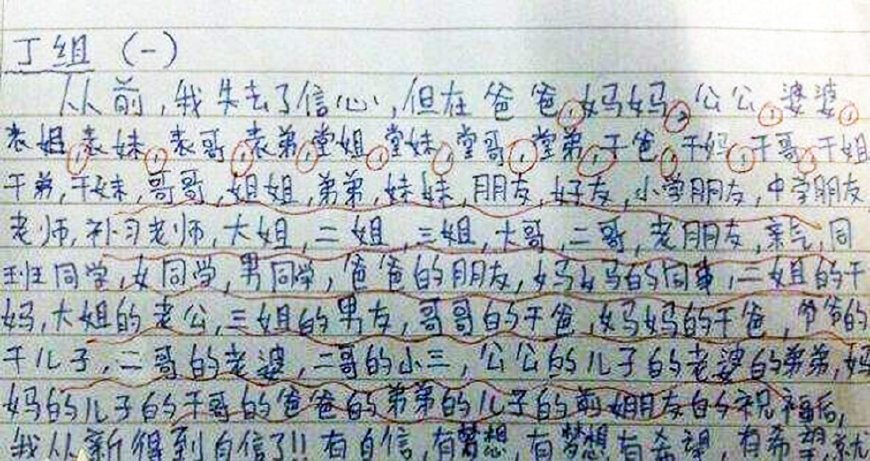 丁组 (一)
从前,我失去了信心,但在爸爸,妈妈,公公,婆婆,
表姐,表妹,表哥,表弟,堂姐,堂妹,堂哥,堂弟,干爸,干妈,干哥,干姐
干弟,干妹,哥哥,姐姐,弟弟,妹妹,朋友,好友,小学朋友,中学朋友
老师,补习老师,大姐,二姐,三姐,大哥,二哥,老朋友,亲气,同
班同学,女同学,男同学,爸爸的朋友,妈妈的同事,二姐的干
妈,大姐的老公,三姐的男友,哥哥的干爸,妈妈的干爸,爷爷的
干儿子,二哥的老婆,二哥的小三,公公的儿子的老婆的弟弟,妈
妈的儿子的干哥的爸爸的弟弟的儿子的前女朋友的祝福后,
我从新得到自信了!! 有自信,有梦想,有梦想有希望,有希望,就